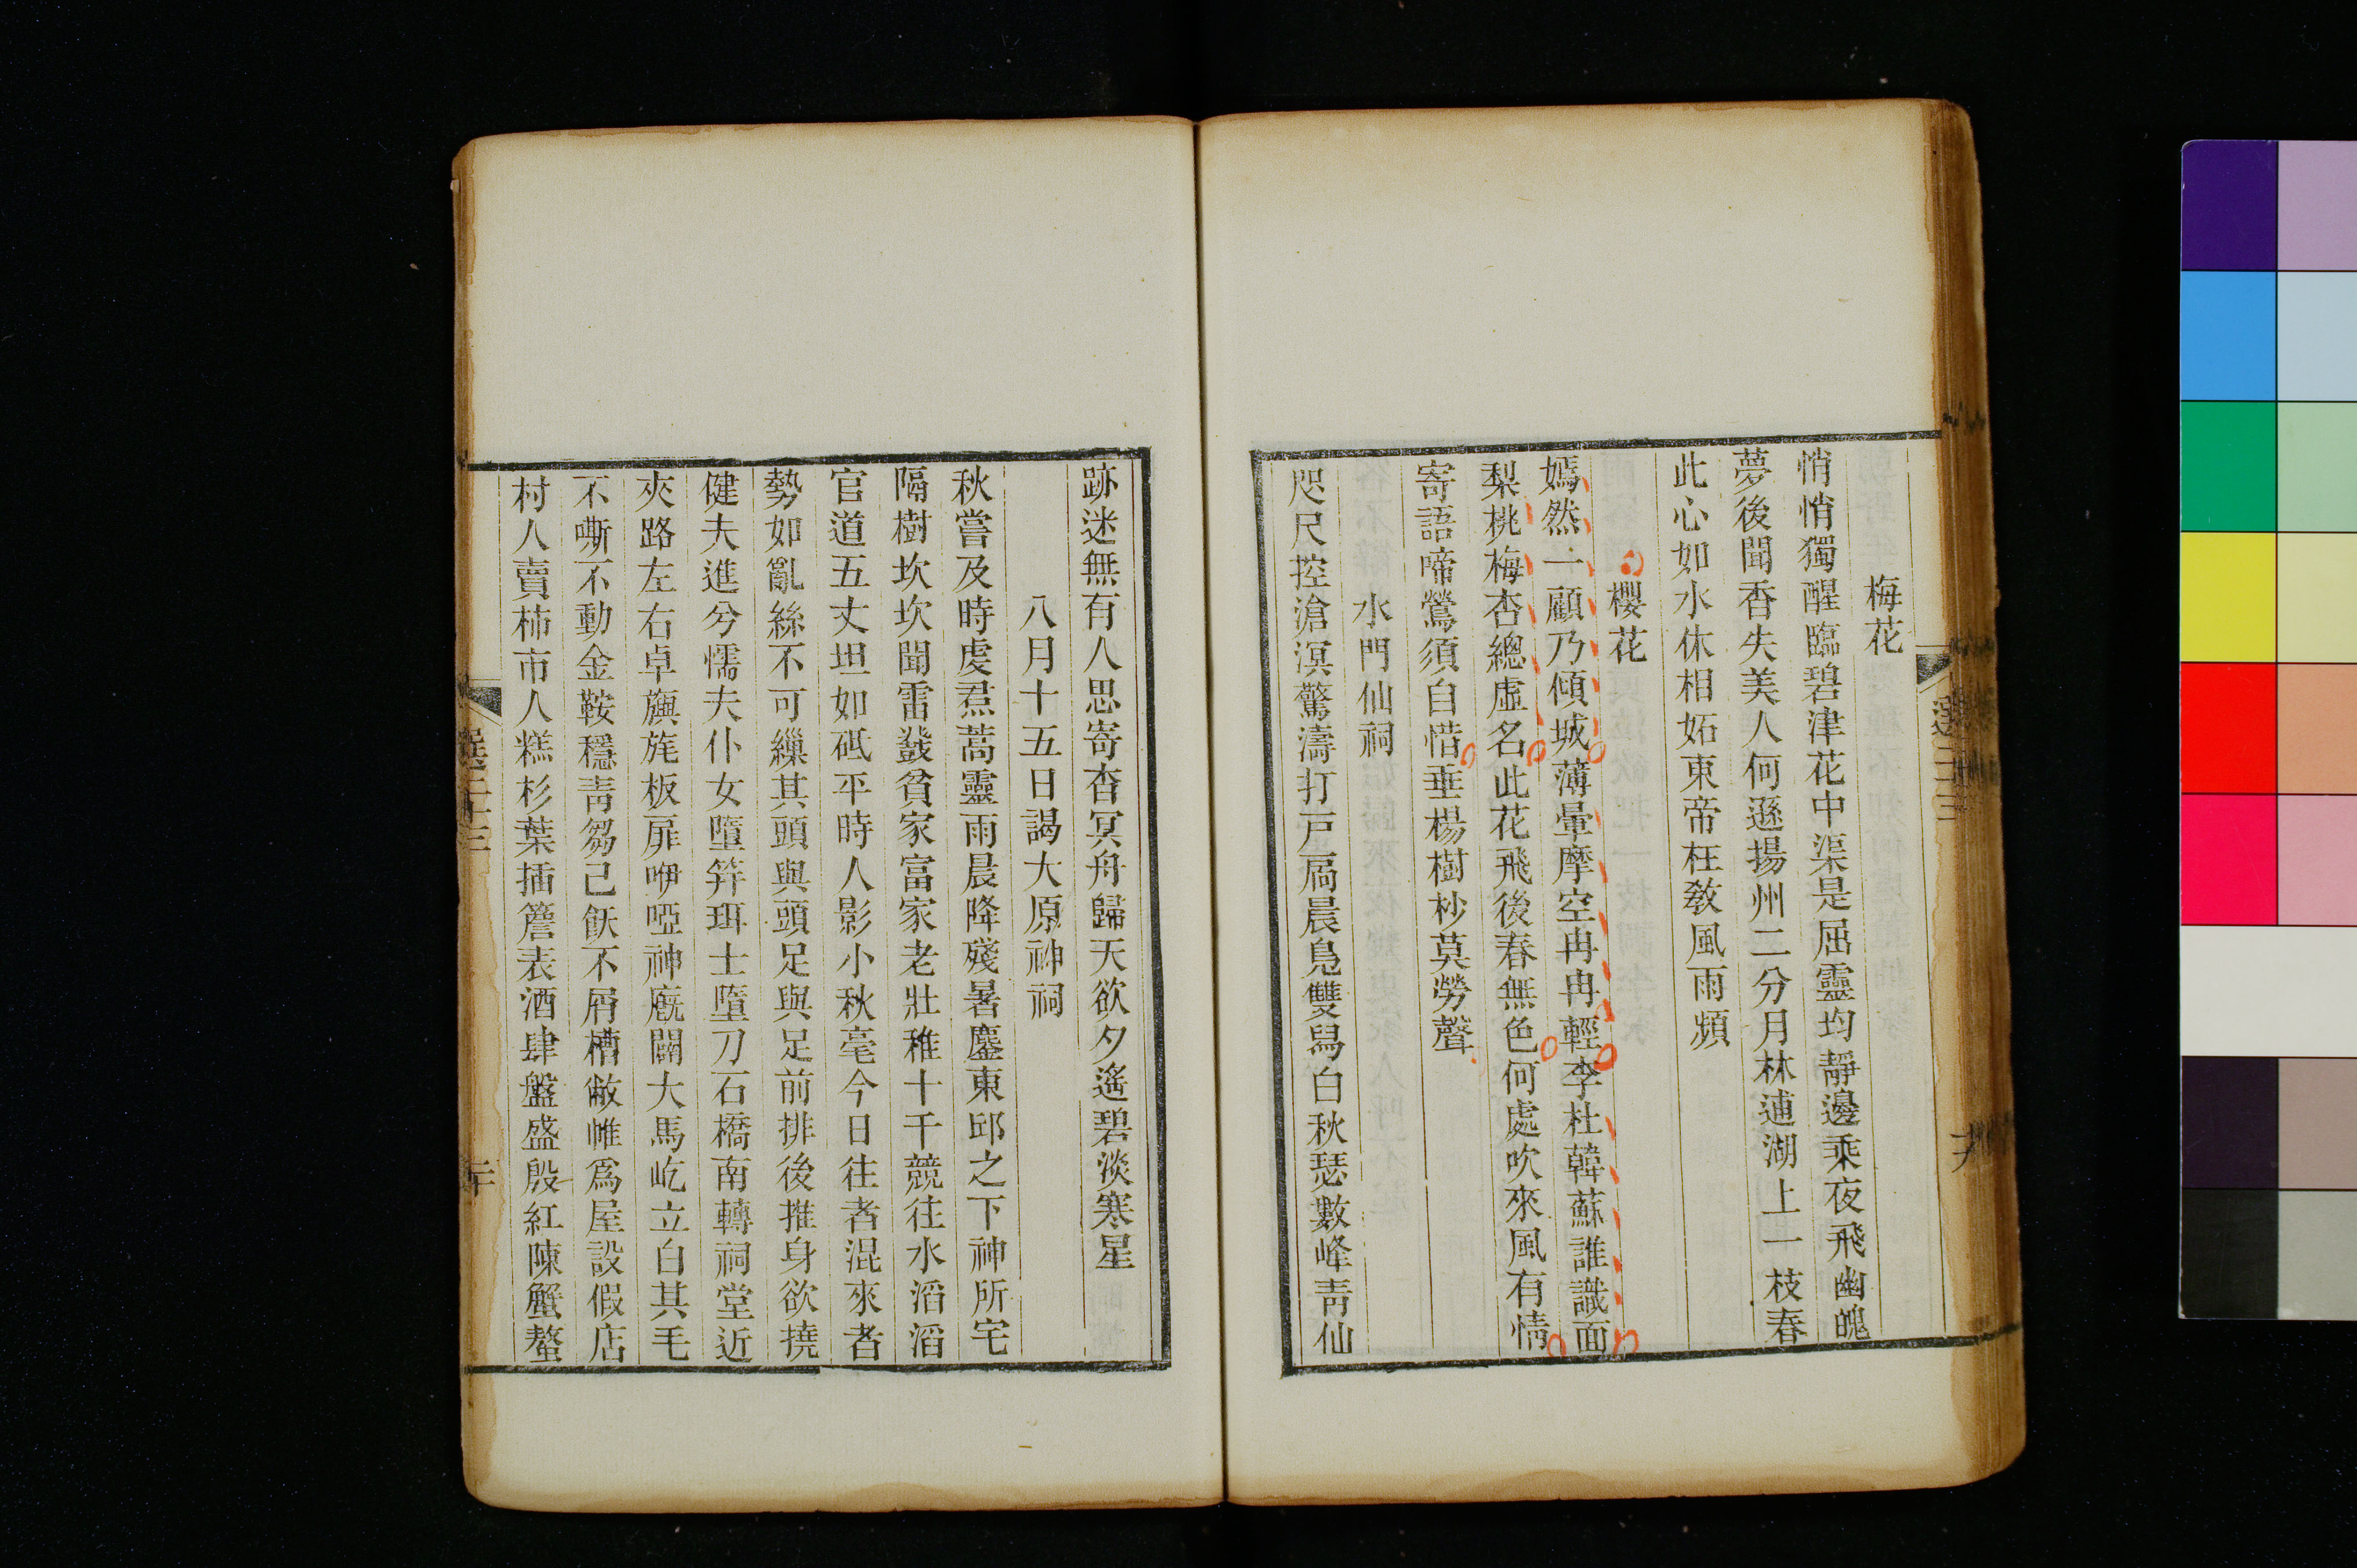 梅花
悄悄獨醒臨碧津花中渠是屈靈均靜邊乘夜飛幽魄
夢後聞香失美人何遜揚州二分月林逋湖上一枝春
此心如水休相妬東帝枉敎風雨頻
櫻花
嫣然一顧乃傾城薄暈摩空冉冉輕李杜韓蘇誰識面
梨桃梅杏總虛名此花飛後春無色何處吹來風有情
寄語啼鶯須自惜垂楊樹杪莫勞聲
水門仙祠
咫尺控滄溟驚濤打戸扃晨鳧雙舄白秋瑟數峰靑仙
跡迷無有人思寄杳冥舟歸天欲夕遙碧淡寒星
八月十五日謁大原神祠
秋嘗及時虔焄蒿靈雨晨降殘暑鏖東邱之下神所宅
隔樹坎坎聞雷鼗貧家富家老壯稚十千競往水滔滔
官道五丈坦如砥平時人影小秋毫今日往者混來者
勢如亂絲不可繅其頭與頭足與足前排後推身欲撓
健夫進兮懦夫仆女墮笄珥士墮刀石橋南轉祠堂近
夾路左右卓旟旄板扉咿啞神廐闢大馬屹立白其毛
不嘶不動金鞍穩靑芻已飫不屑槽敝帷爲屋設假店
村人賣柿市人糕杉葉插簷表酒肆盤盛殷紅陳蟹螯